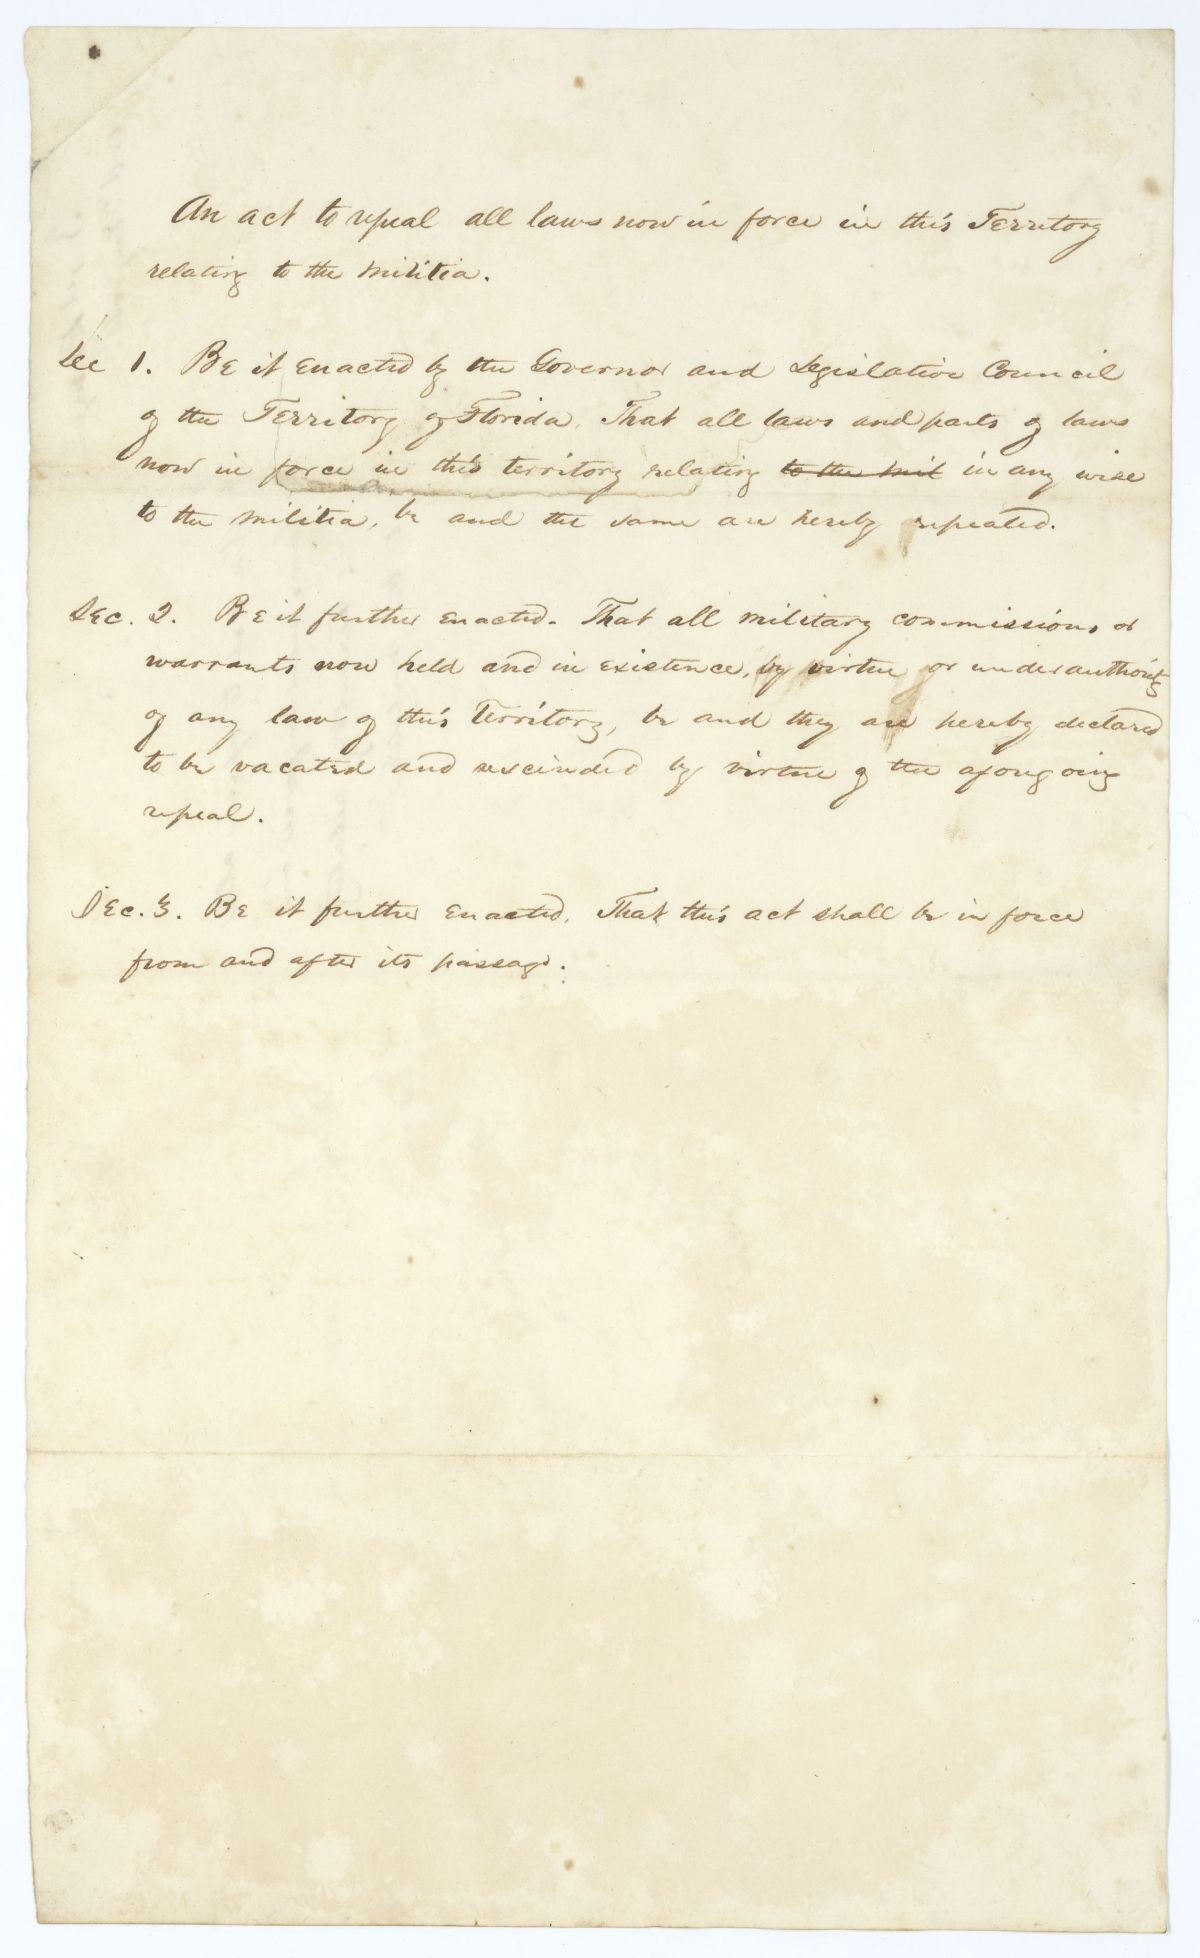 An act to repeal all laws now in force in this Territory
relating to the militia.
Sec 1. Be it enacted by the Governor and Legislative Council
of the Territory of Florida, That all laws and parts of laws
now in force in this territory relating to the mil in any wise
to the militia, be and the same are hereby repealed.
Sec. 2. Be it further enacted. That all military commissions or
warrants now held and in existence, by virtue or under authority
of any law of this Territory, be and they are hereby declared
to be vacated and rescinded by virtue of the aforegoing
repeal.
Sec. 3. Be it further enacted, That this act shall be in force
from and after its passage.